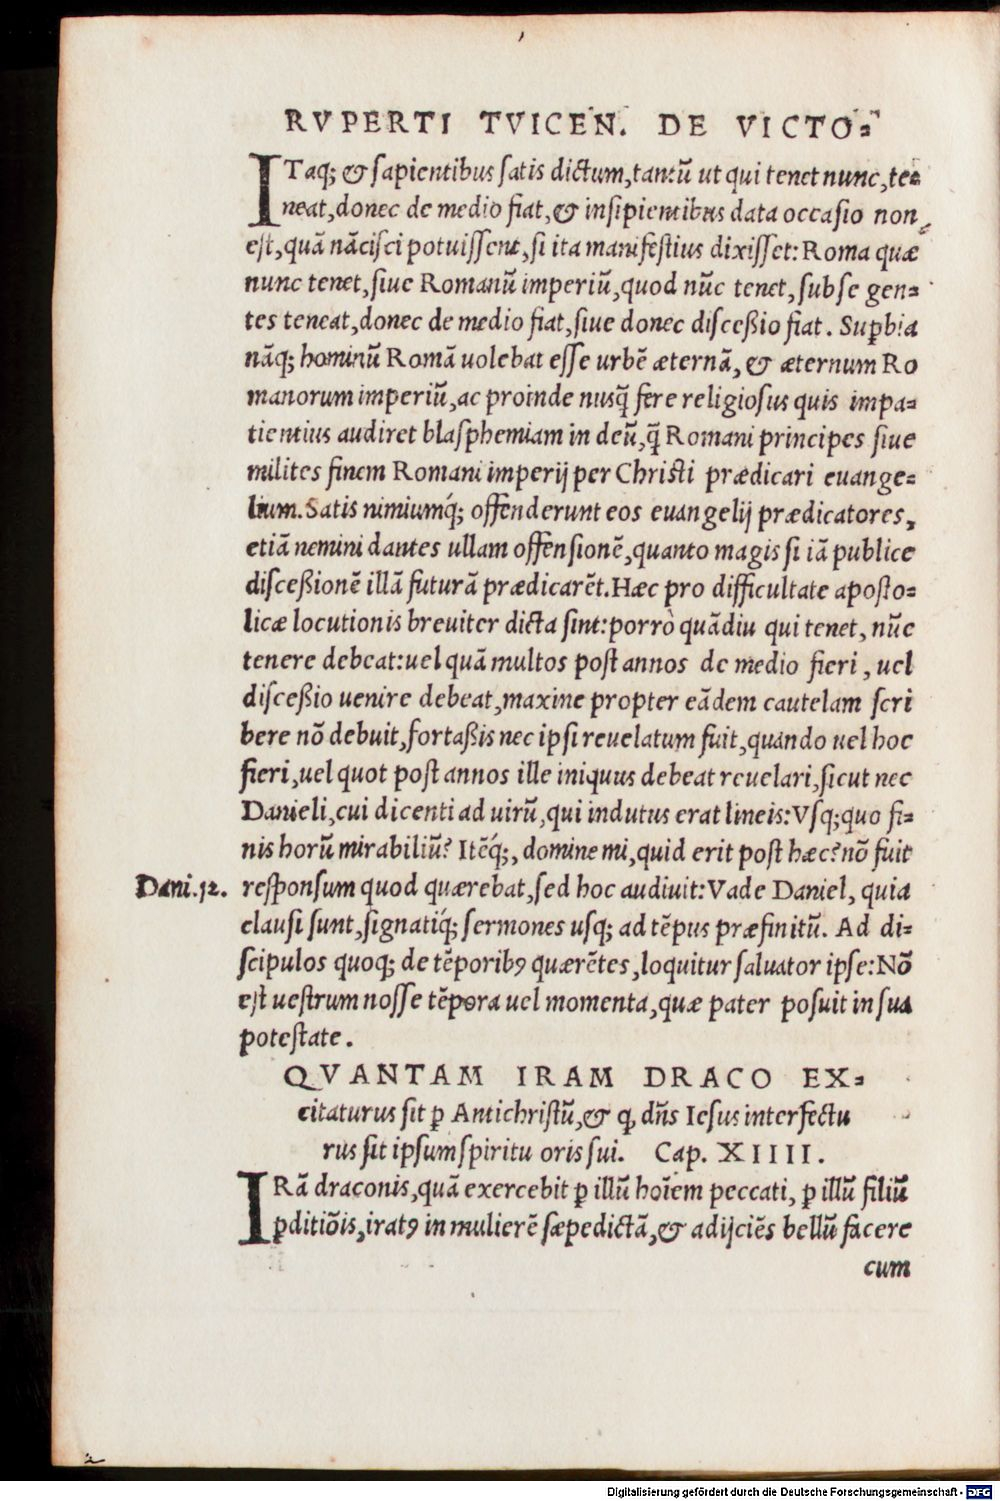 RVPERTI TVICEN. DE VICTO-
ITaq; & sapientibus satis dictum, tantũ ut qui tenet nunc, te-
neat, donec de medio fiat, & insipientibus data occasio non
est, quã nãcisci potuissent, si ita manifestius dixisset: Roma quæ
nunc tenet, siue Romanũ imperiũ, quod nũc tenet, sub se gen-
tes teneat, donec de medio fiat, siue donec disceßio fiat. Suꝑbia
nãq; hominũ Romã uolebat esse urbẽ æternã, & æternum Ro
manorum imperiũ, ac proinde nusq̃ fere religiosus quis impa-
tientius audiret blasphemiam in deũ, q̃ Romani principes siue
milites finem Romani imperij per Christi prædicari euange-
lium. Satis nimiumq́; offenderunt eos euangelij prædicatores,
etiã nemini dantes ullam offensionẽ, quanto magis si iã publice
disceßionẽ illã futurã prædicarẽt. Hæc pro difficultate aposto-
licæ locutionis breuiter dicta sint: porrò quãdiu qui tenet, nũc
tenere debeat: uel quã multos post annos de medio fieri, uel
disceßio uenire debeat, maxime propter eãdem cautelam scri
bere nõ debuit, fortaßis nec ipsi reuelatum fuit, quando uel hoc
fieri, uel quot post annos ille iniquus debeat reuelari, sicut nec
Danieli, cui dicenti ad uirũ, qui indutus erat lineis: Vsq; quo fi-
nis horũ mirabiliũ? Itẽq́;, domine mi, quid erit post hæc? nõ fuit
Dani.12. responsum quod quærebat, sed hoc audiuit: Vade Daniel, quia
clausi sunt, signatiq́; sermones usq; ad tẽpus præfinitũ. Ad di-
scipulos quoq; de tẽporibꝰ quærẽtes, loquitur saluator ipse: Nõ
est uestrum nosse tẽpora uel momenta, quæ pater posuit in sua
potestate.
QVANTAM IRAM DRACO EX-
citaturus sit ꝑ Antichristũ, & ꝙ dñs Iesus interfectu
rus sit ipsum spiritu oris sui. Cap. XIIII.
IRã draconis, quã exercebit ꝑ illũ hoĩem peccati, ꝑ illũ filiũ
ꝑditiõis, iratꝰ in mulierẽ sæpedictã, & adijciẽs bellũ facere
cum
Digitalisierung gefördert durch die Deutsche Forschungsgemeinschaft - DFG